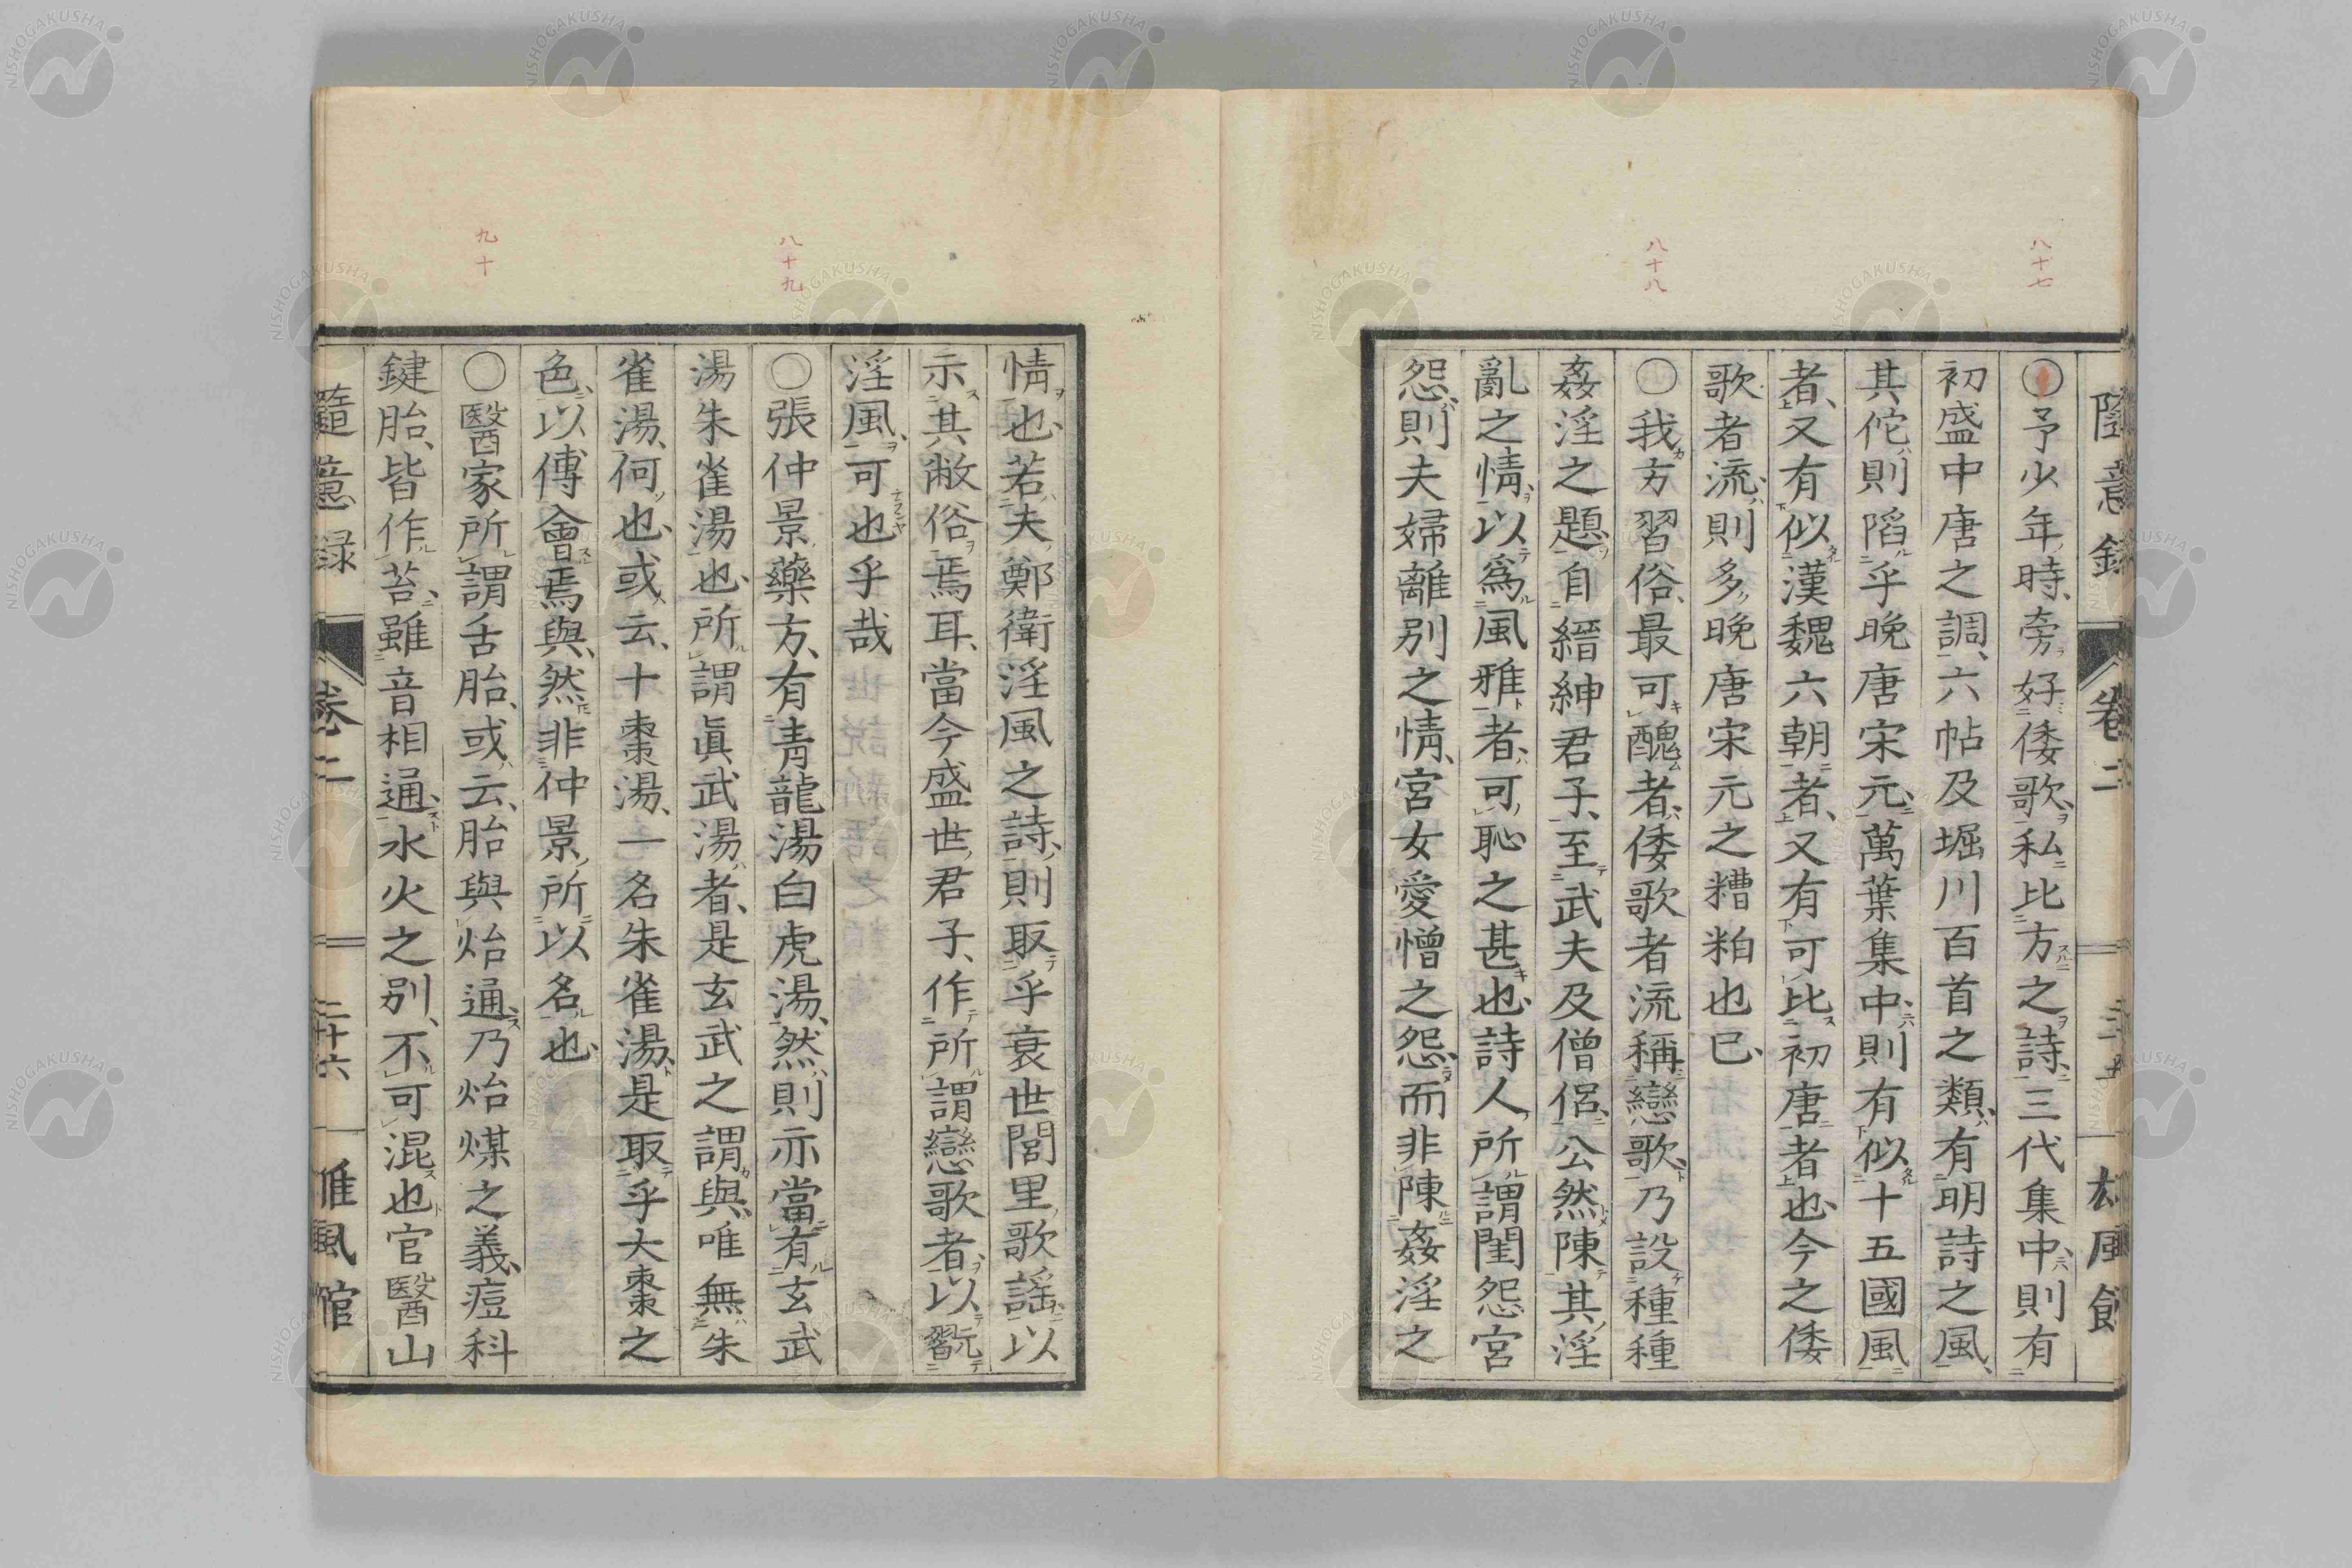 八十七
八十八
隨意錄 卷二
〇予少年時、旁好倭歌、私比方之詩、三代集中、則有
初盛中唐之調、六帖及堀川百首之類、有明詩之風、
其佗則䧟乎晚唐宋元、萬葉集中、則有似十五國風
者、又有似漢魏六朝者、又有可比初唐者也、今之倭
歌者流、則多晚唐宋元之糟粕也已、
〇我方習俗、最可醜者、倭歌者流、稱戀歌、乃設種種
姦淫之題、自縉紳君子、至武夫及僧侶、公然陳其淫
亂之情、以爲風雅者、可恥之甚也、詩人所謂閨怨宮
怨、則夫婦離別之情、宮女愛憎之怨、而非陳姦淫之
八十九
九十
情也、若夫鄭衛淫風之詩、則取乎衰世閭里歌謠、以
示其敝俗焉耳、當今盛世君子、作所謂戀歌者、以翫
淫風、可也乎哉
〇張仲景藥方、有靑龍湯白虎湯、然則亦當有玄武
湯朱雀湯也、所謂眞武湯者、是玄武之謂與、唯無朱
雀湯、何也、或云、十棗湯、一名朱雀湯、是取乎大棗之
色、以傅會焉與、然非仲景所以名也、
〇醫家所謂舌胎、或云、胎與炲通、乃炲煤之義、痘科
鍵胎、皆作苔、雖音相通、水火之別、不可混也、官醫山
隨意錄 卷二 二十六 惟風館